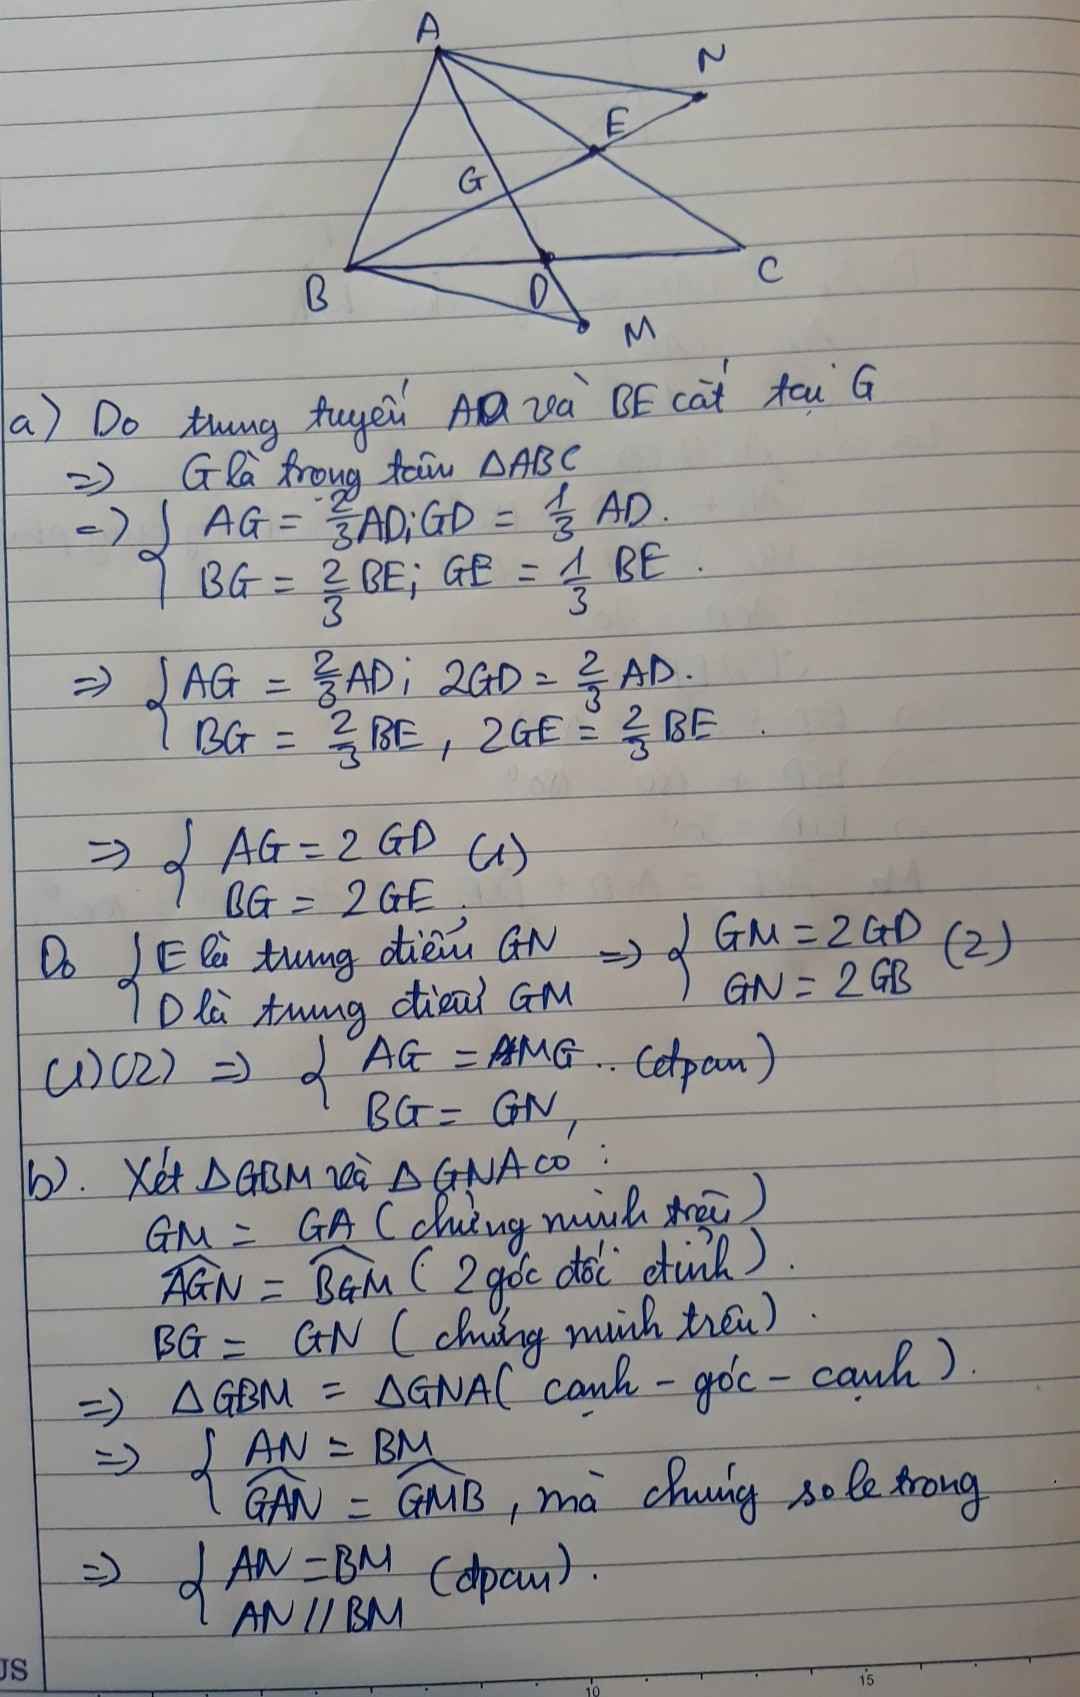 A
N
E
G
B
D
C
M
a) Do trung tuyến AD và BE cắt tại G
=> G là trọng tâm ΔABC
=> { AG = 2/3 AD; GD = 1/3 AD.
BG = 2/3 BE; GE = 1/3 BE.
=> { AG = 2/3 AD; 2GD = 2/3 AD.
BG = 2/3 BE, 2GE = 2/3 BE.
=> { AG = 2GD (1)
BG = 2GE.
Do { E là trung điểm GN => { GM = 2GD (2)
D là trung điểm GM GN = 2GB
(1)(2) => { AG = MG .. (đpcm)
BG = GN,
b). Xét ΔGBM và ΔGNA có:
GM = GA (chứng minh trên)
\widehat{AGN} = \widehat{BGM} (2 góc đối đỉnh).
BG = GN (chứng minh trên).
=> ΔGBM = ΔGNA (cạnh - góc - cạnh).
=> { AN = BM
\widehat{GAN} = \widehat{GMB}, mà chúng so le trong
=> { AN = BM (đpcm).
AN // BM
JS
10 15